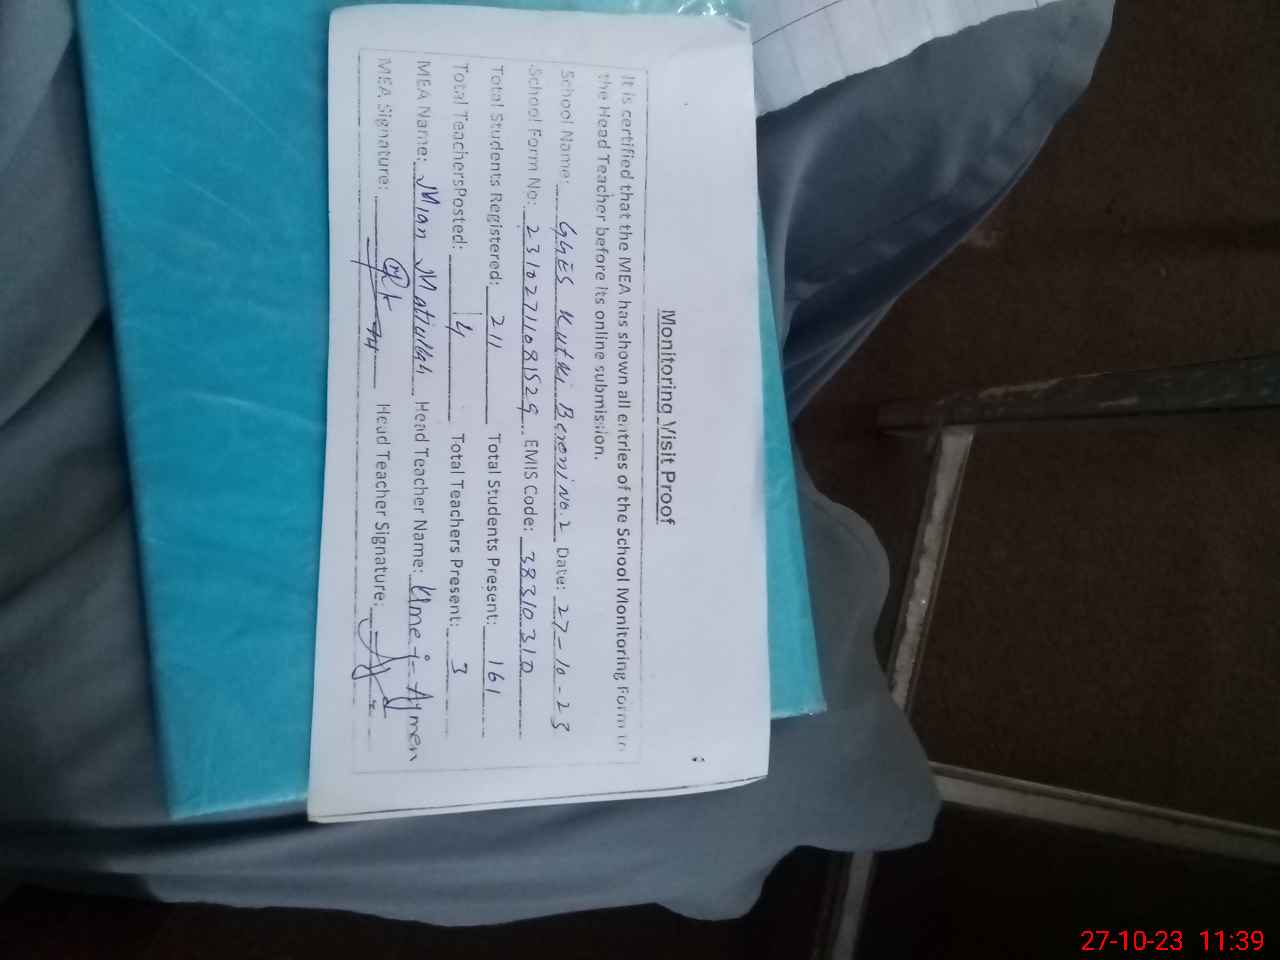 Monitoring Visit Proof
It is certified that the MEA has shown all entries of the School Monitoring Form to
the Head Teacher before its online submission.
School Name: GGES Kutki Beroni No.2 Date: 27-10-23
School Form No: 23102711081529 EMIS Code: 38310310
Total Students Registered: 211 Total Students Present: 161
Total TeachersPosted: 4 Total Teachers Present: 3
MEA Name: Mian Matiullah Head Teacher Name: Ume-i-Aymen
MEA Signature: Head Teacher Signature:
27-10-23 11:39